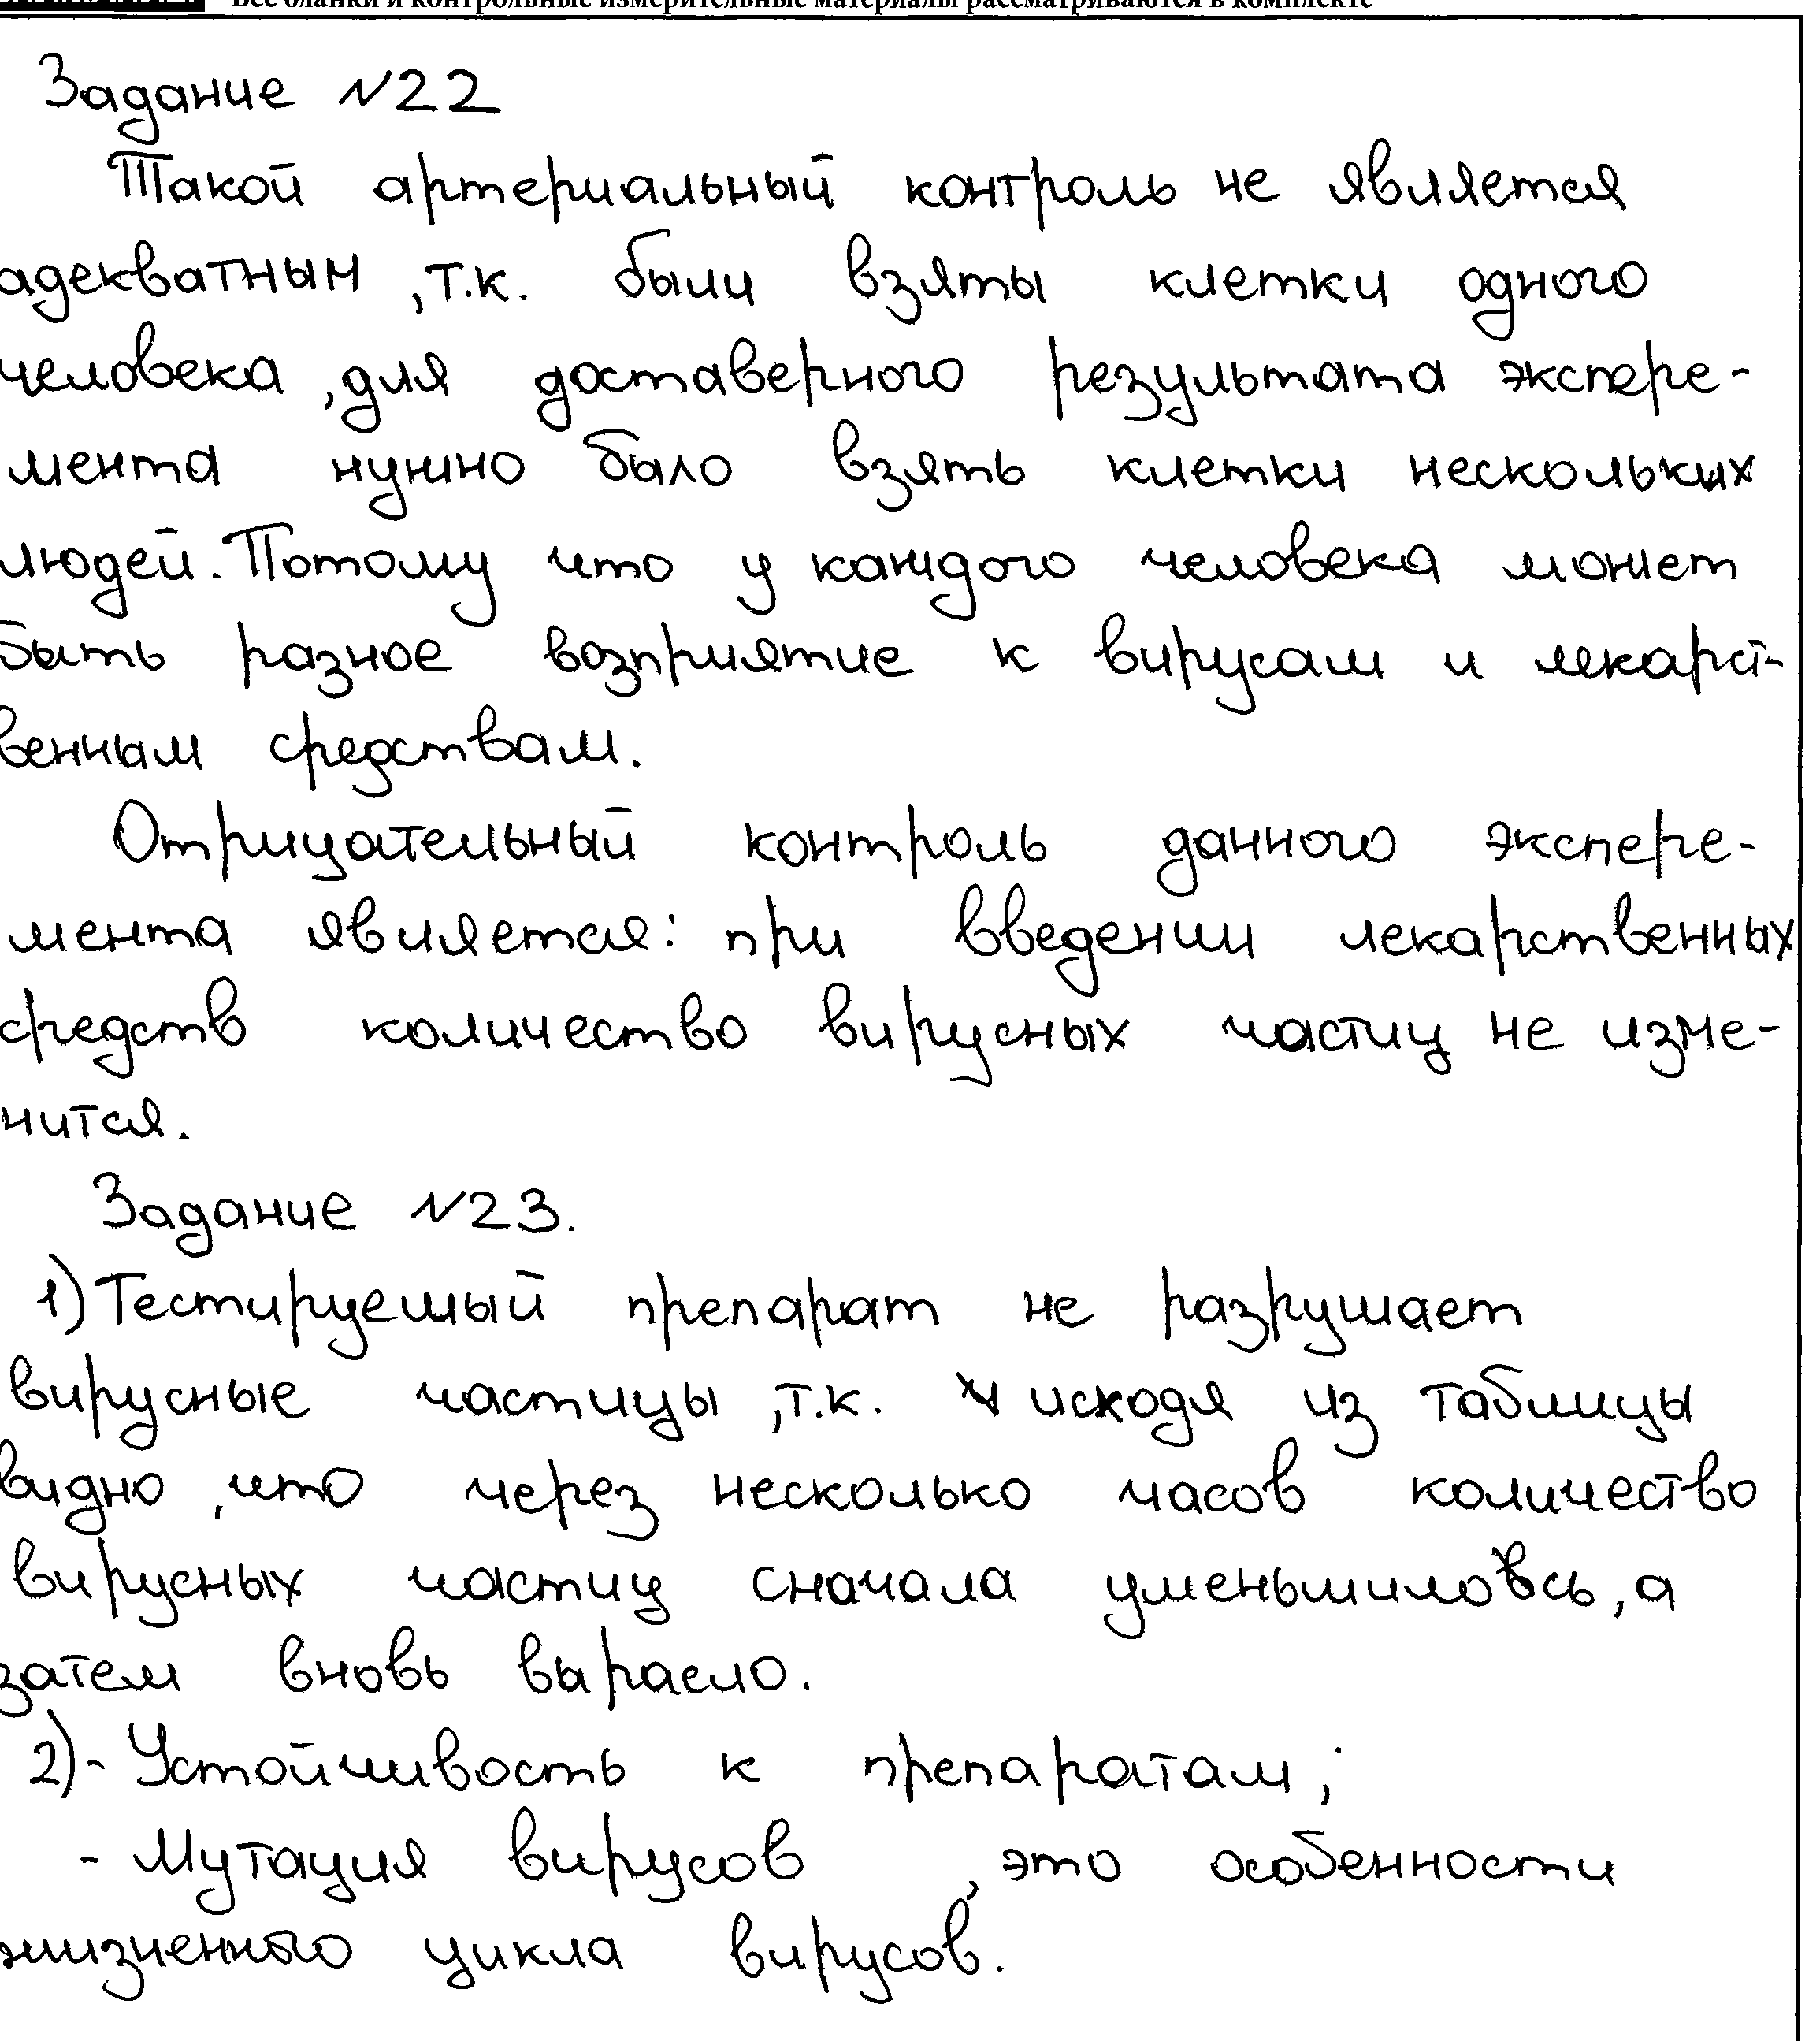 Все бланки и контрольные измерительные материалы рассматриваются в комплекте
Задание №22
Такой артериальный контроль не является
адекватным, т.к. были взяты клетки одного
человека, для доставерного результата экспере-
мента нужно было взять клетки нескольких
людей. Потому что у каждого человека может
быть разное возприятие к вирусам и лекарст-
венным средствам.
Отрицательный контроль данного экспере-
мента является: при введении лекарственных
средств количество вирусных частиц не изме-
нится.
Задание №23.
1) Тестируемый препарат не разрушает
вирусные частицы, т.к. исходя из таблицы
видно, что через несколько часов количество
вирусных частиц сначала уменьшилось, а
затем вновь выросло.
2) - Устойчивость к препаратам;
- Мутация вирусов, это особенности
жизненного цикла вирусов.